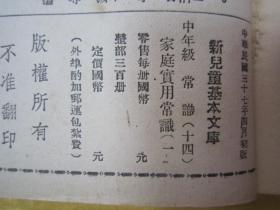 中華民國三十七年四月初版
新兒童基本文庫
中年級 常識（十四）
家庭實用常識（一）
零售每册國幣　元
整部三百册
定價國幣　元
（外埠酌加郵運包紮費）
版權所有
不准翻印